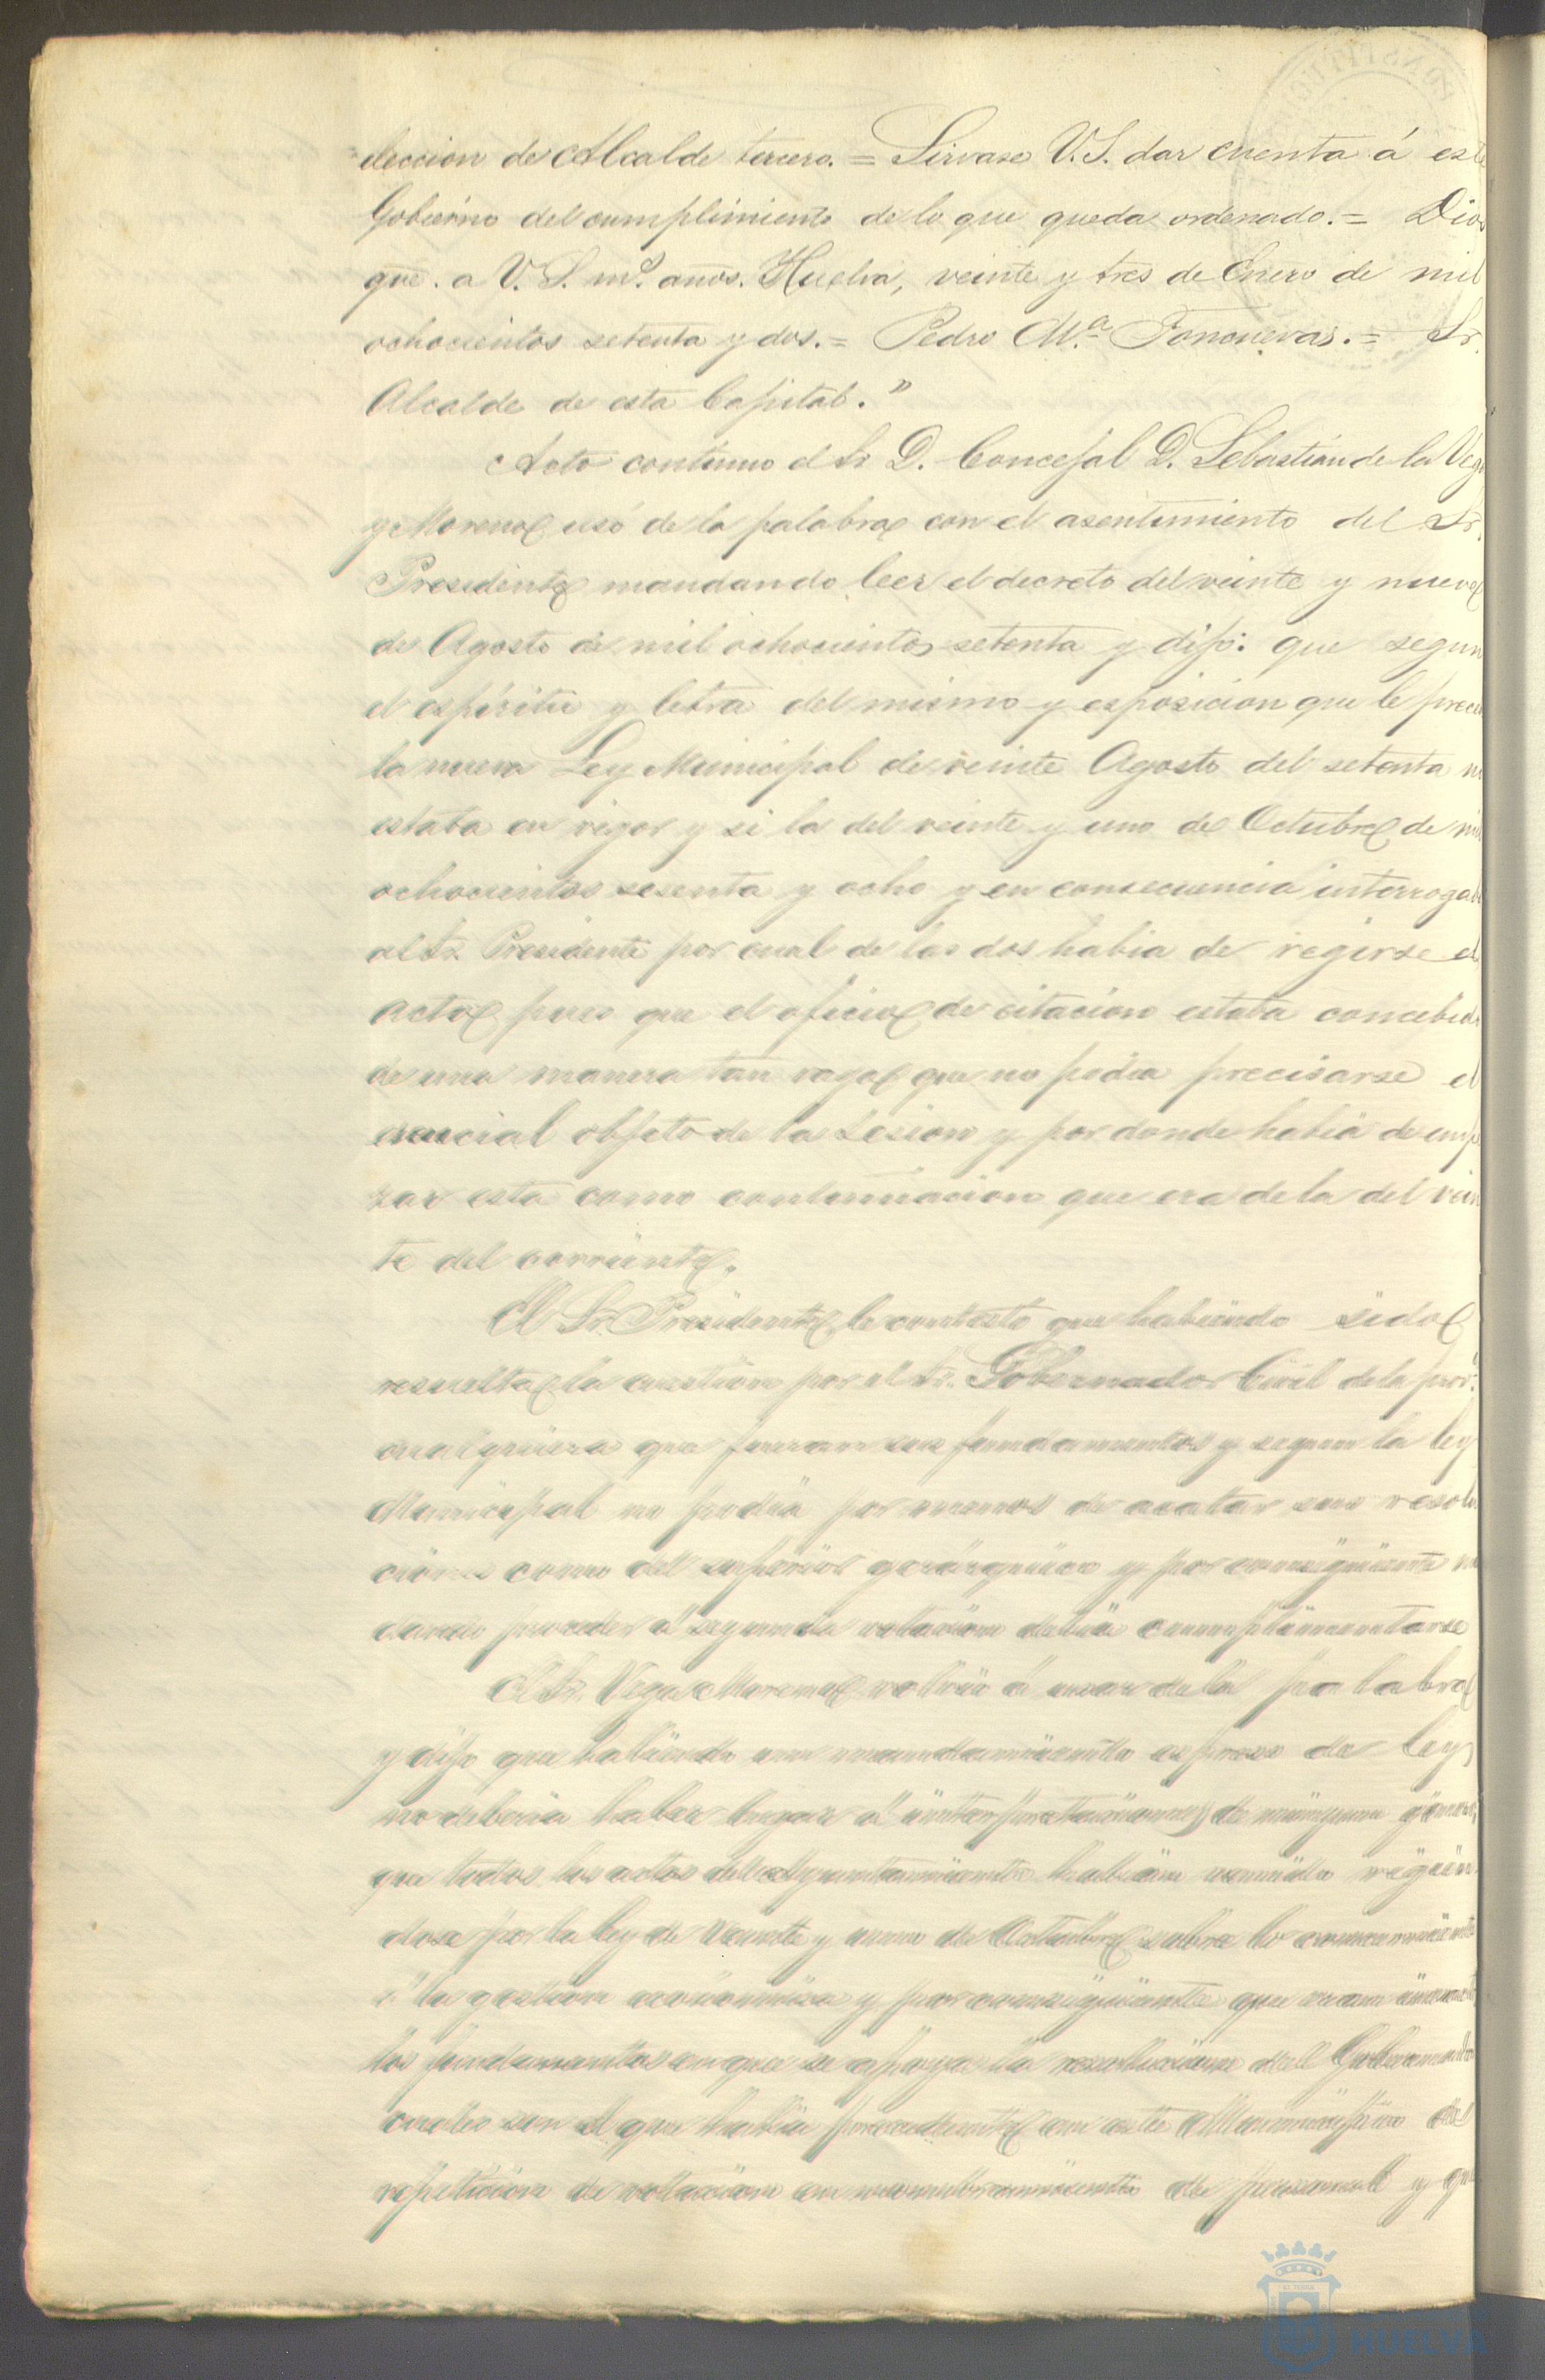 eleccion de Alcalde tercero. = Sirvase V.S. dar cuenta á este
Gobierno del cumplimiento de lo que queda ordenado. = Dios
gue. a V.S. ms. años. Huelva, veinte y tres de Enero de mil
ochocientos setenta y dos. = Pedro Ma. = Sr.
Alcalde de esta Capital."
Acto continuo el Sr D. Concejal D. Sebastian de la Vega
y Moreno usó de la palabra con el asentimiento del Sr.
Presidente mandando leer el decreto del veinte y nueve
de Agosto de mil ochocientos setenta y dijo: que segun
el espíritu y letra del mismo y esposicion que le prece
la nueva Ley Municipal de veinte Agosto del setenta no
estaba en vigor y si la del veinte y uno de Octubre de mil
ochocientos sesenta y ocho y en consecuencia interrogaba
al Sr. Presidente por cual de las dos habia de regirse el
acto pues que el oficio de citacion estaba concebido
de una manera tan vaga que no podia precisarse el
esencial objeto de la Sesion y por donde habia de empe
zar esta como continuacion que era de la del vein
te del corriente.
El Sr. Presidente le contestó que habiendo sido
resuelta la cuestion por el Sr. Gobernador Civil de la prov.
cualquiera que fueran sus fundamentos y segun la ley
Municipal no podia por menos de acatar sus resolu
ciones como del superior gerárquico y por consiguiente
proceder á segunda votacion debia cumplimentarse
El Sr. Vega Moreno volvió á usar de la palabra
y dijo que habiendo un mandamiento espreso de ley
no deberia haber lugar á interpretaciones de ningun género,
que todos los actos del Ayuntamiento habian venido rigien
dose por la ley de veinte y uno de Octubre salvo lo concerniente
á la gestion económica y por consiguiente que eran
los fundamentos en que se apoya la resolucion del Gobernador
cuales son el que habia precedente en este Municipio de
repeticion de votacion en nombramiento de personal y que
HUELVA